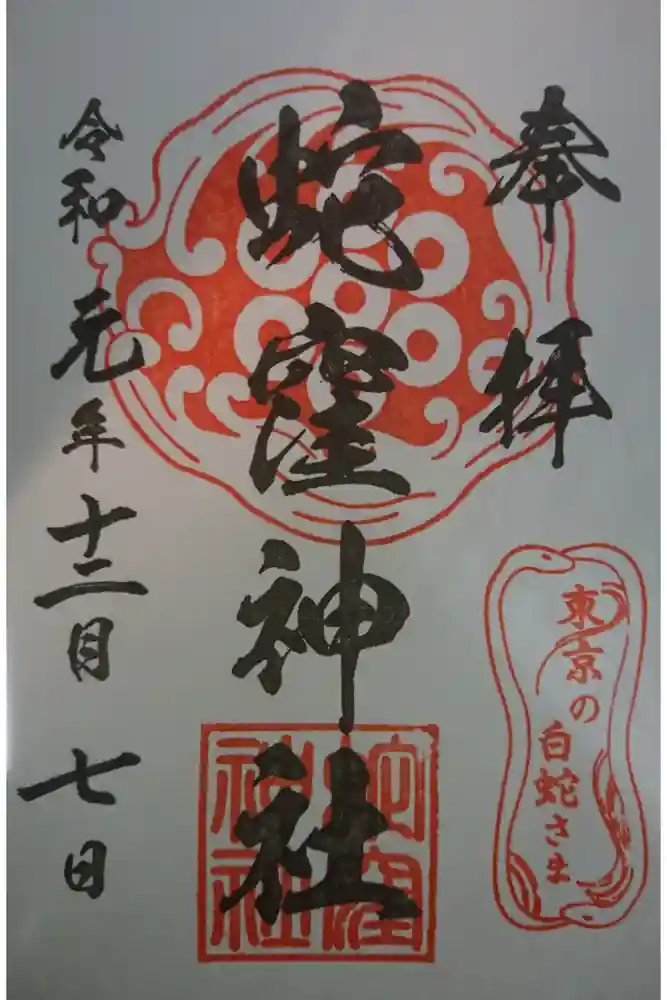 奉拝
蛇窪神社
蛇窪
神社
令和元年十二月七日
東京の
白蛇さま